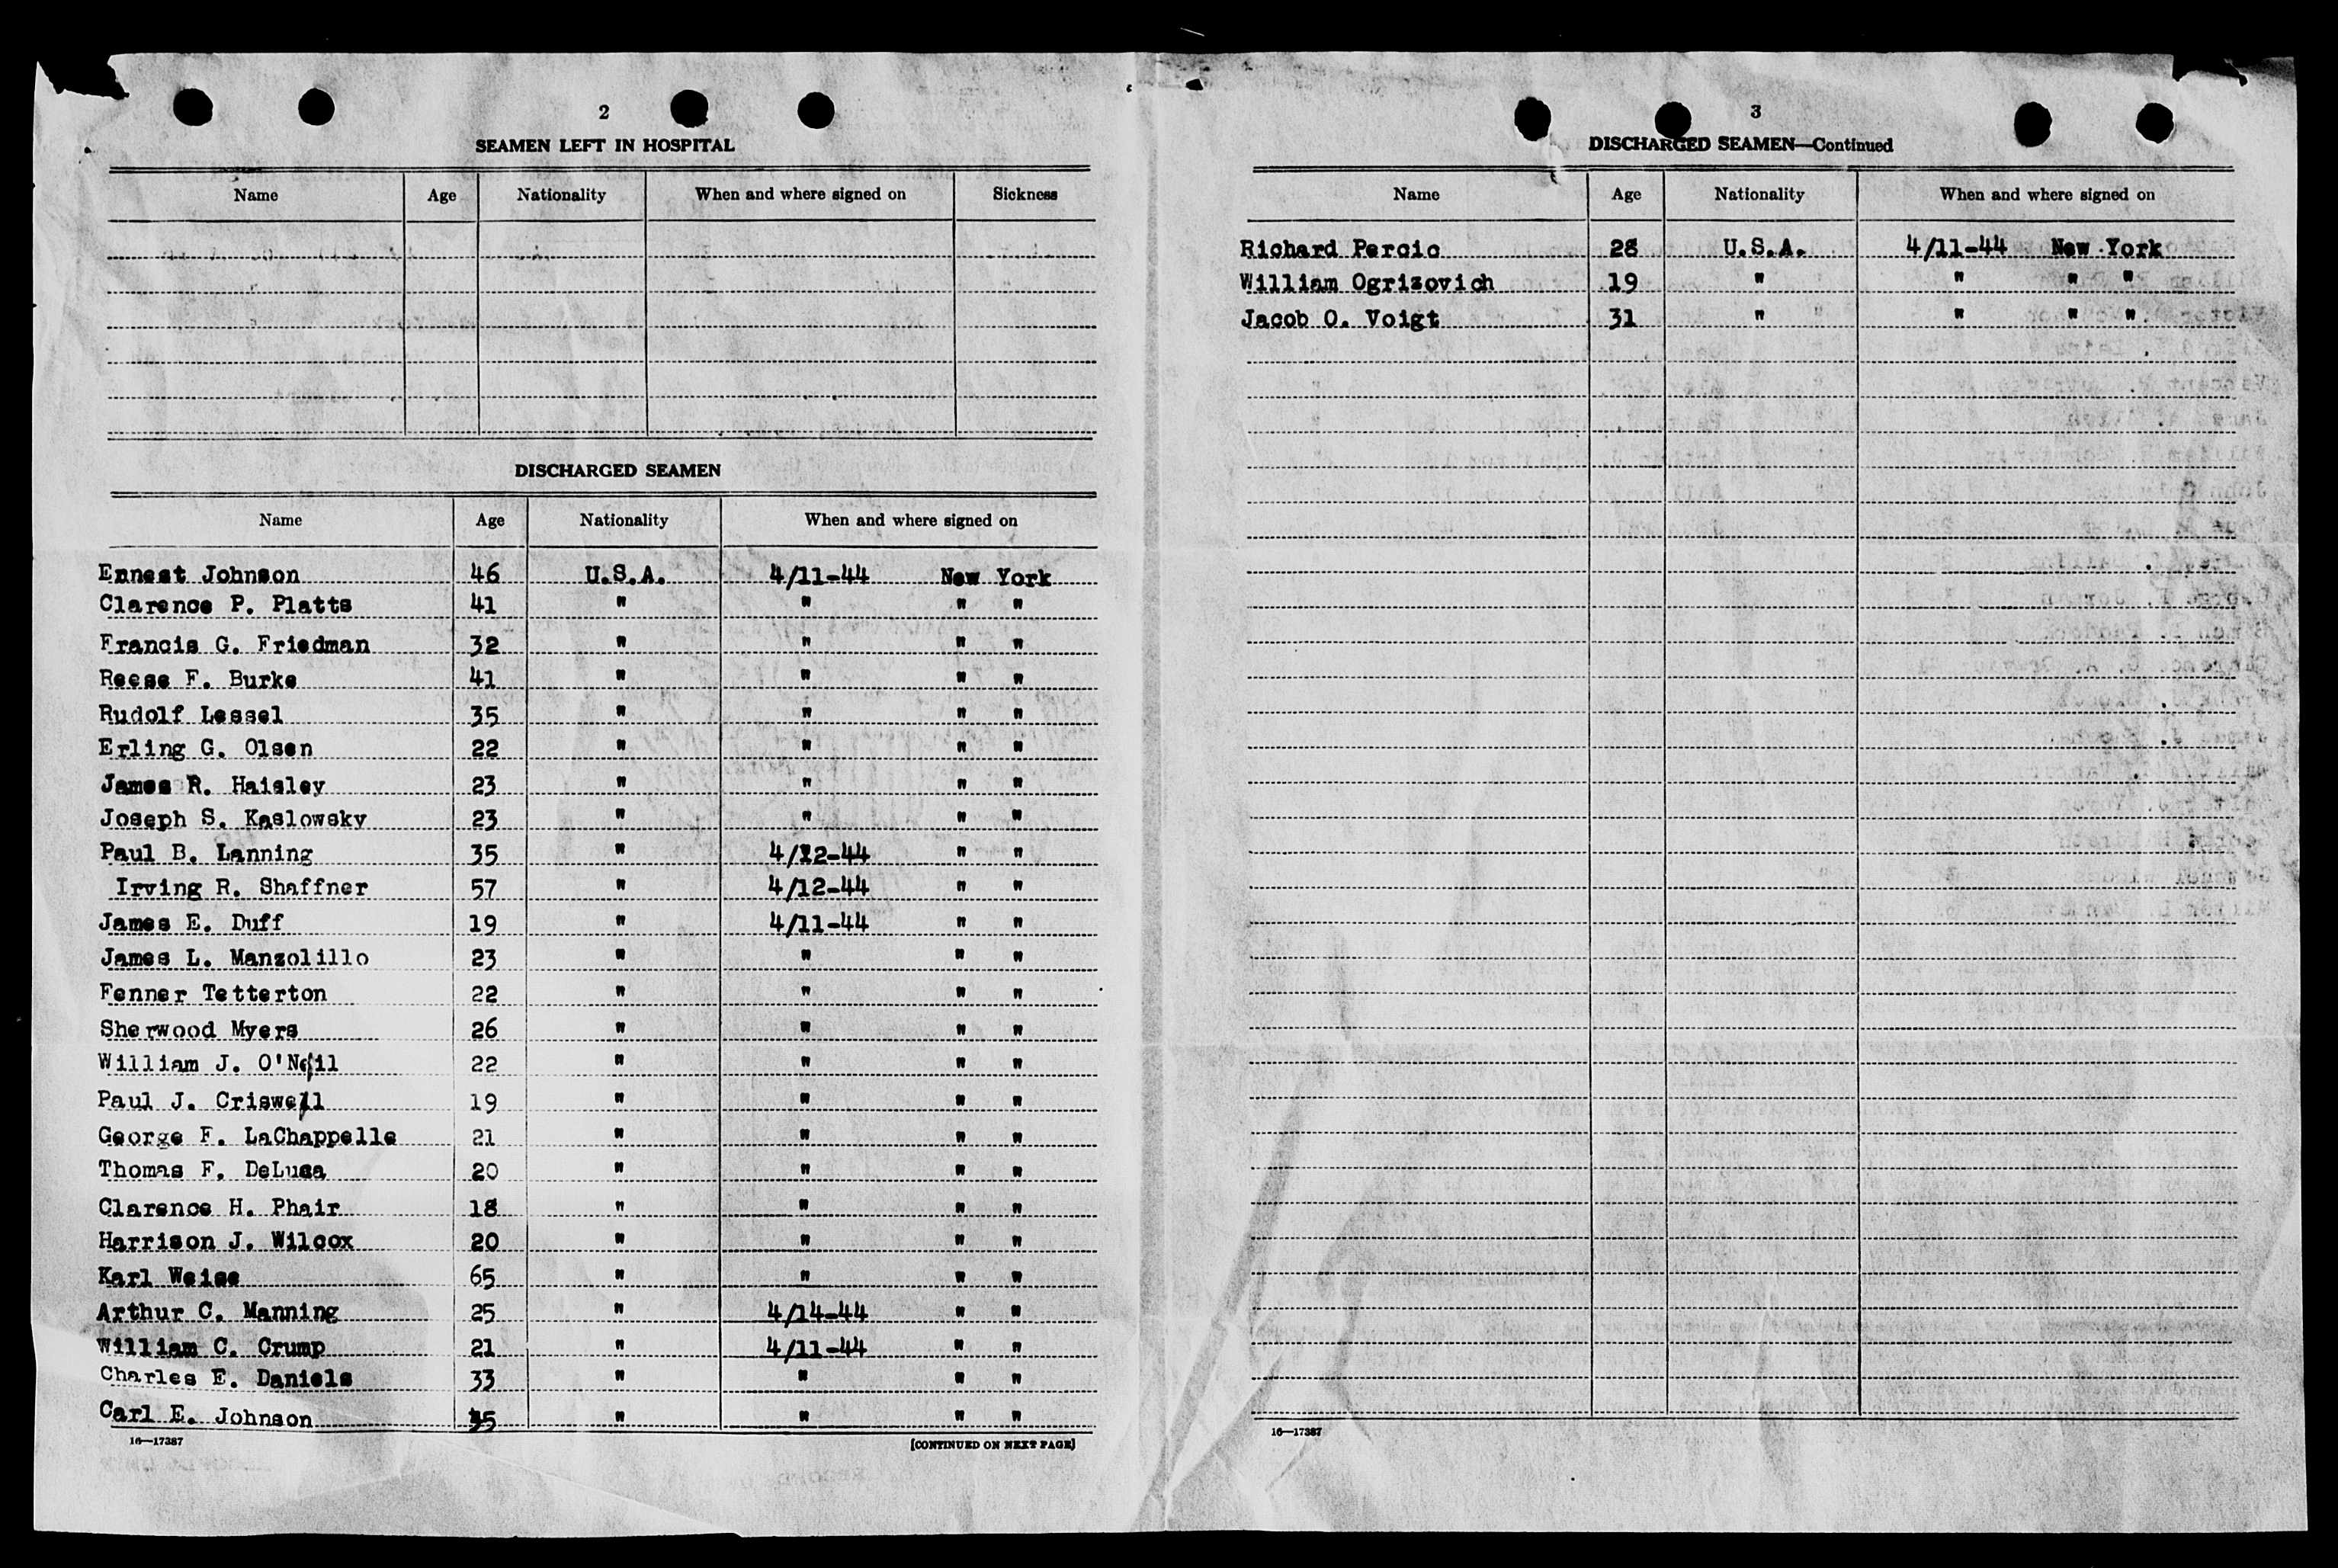 2
SEAMEN LEFT IN HOSPITAL
Name Age Nationality When and where signed on Sickness
DISCHARGED SEAMEN
Name Age Nationality When and where signed on
Ernest Johnson 46 U.S.A. 4/11-44 New York
Clarence P. Platts 41 " " " "
Francis G. Friedman 32 " " " "
Reese F. Burke 41 " " " "
Rudolf Lessel 35 " " " "
Erling G. Olsen 22 " " " "
James R. Haisley 23 " " " "
Joseph S. Kaslowsky 23 " " " "
Paul B. Lanning 35 " 4/12-44 " "
Irving R. Shaffner 57 " 4/12-44 " "
James E. Duff 19 " 4/11-44 " "
James L. Manzolillo 23 " " " "
Fenner Tetterton 22 " " " "
Sherwood Myers 26 " " " "
William J. O'Neil 22 " " " "
Paul J. Criswell 19 " " " "
George F. LaChappelle 21 " " " "
Thomas F. DeLuca 20 " " " "
Clarence H. Phair 18 " " " "
Harrison J. Wilcox 20 " " " "
Karl Weise 65 " " " "
Arthur C. Manning 25 " 4/14-44 " "
William C. Crump 21 " 4/11-44 " "
Charles E. Daniels 33 " " " "
Carl E. Johnson " " " "
16—17387 [CONTINUED ON NEXT PAGE]
3
DISCHARGED SEAMEN—Continued
Name Age Nationality When and where signed on
Richard Percic 28 U.S.A. 4/11-44 New York
William Ogrizovich 19 " " " "
Jacob O. Voigt 31 " " " "
16—17387